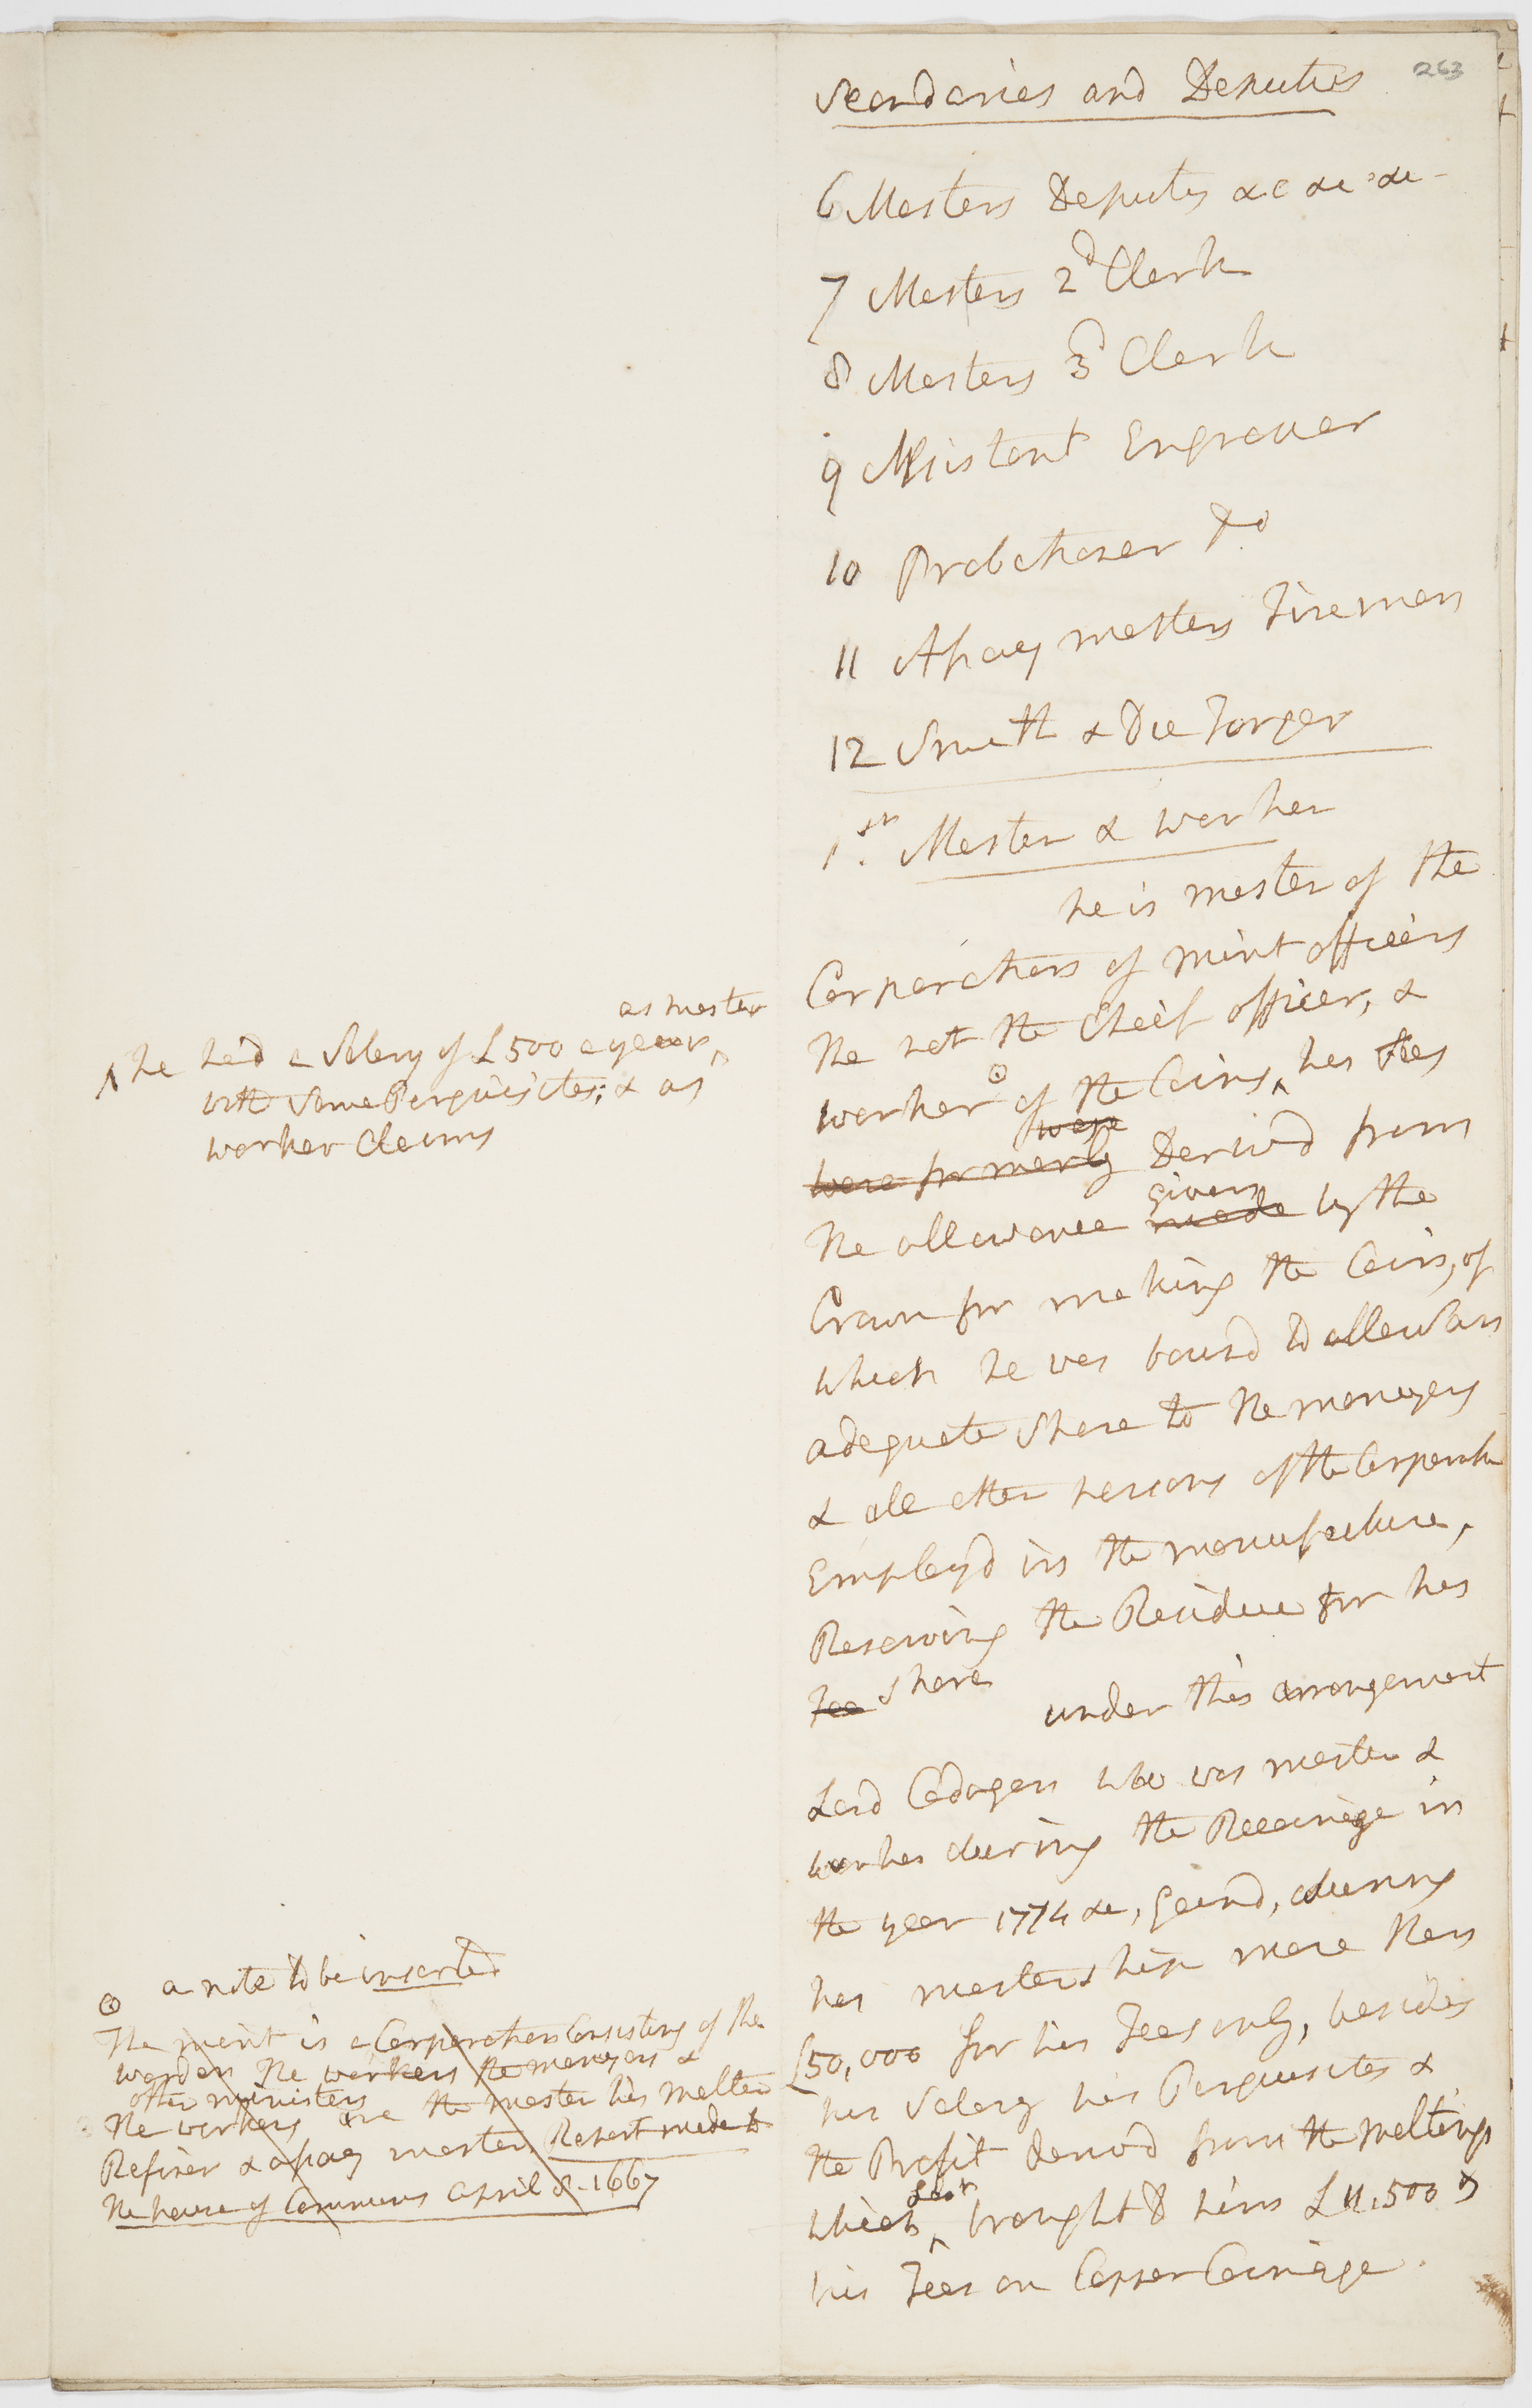 263
Secondaries and Deputies
6 Masters Deputy &c &c &c
7 Masters 2d Clerk
8 Masters 3d Clerk
9 Assistant Engraver
10 Probationer Do
11 Assay masters Fireman
12 Smith & Die Forger
1st. Master & worker
he is master of the
Corporation of mint officers
tho not the Cheif officer, &
worker ⊙ of the Coins, ^ his fees
were
were formerly Derivd from
given
the allowance made by the
Crown for making the Coins, of
which he was bound to allow an
adequate Share to the moneyers
& all other persons of the Corporation
Employd in the manufacture,
Reserving the Residue for his
Fee Share
under this arrangement
Lord Cadogan who was master &
worker during the Recoinage in
the year 1774 &c, gaind, during
his mastership more than
£50,000 for his Fees only, besides
his Salary his Perquisites &
the Profit derivd from the meltings
which ^ brought to him £11,500 &
his Fees on Copper Coinage.
as master
^ he had a Salary of £500 a year, ^
with Some Perquisites; & as
worker Claims
⊙ a note to be inserted
The mint is a Corporation Consisting of the
warden The workers the moneyers &
other ministers
The workers are the master his melter
Refiner & assay master Report made to
the house of Commons April 8 - 1667